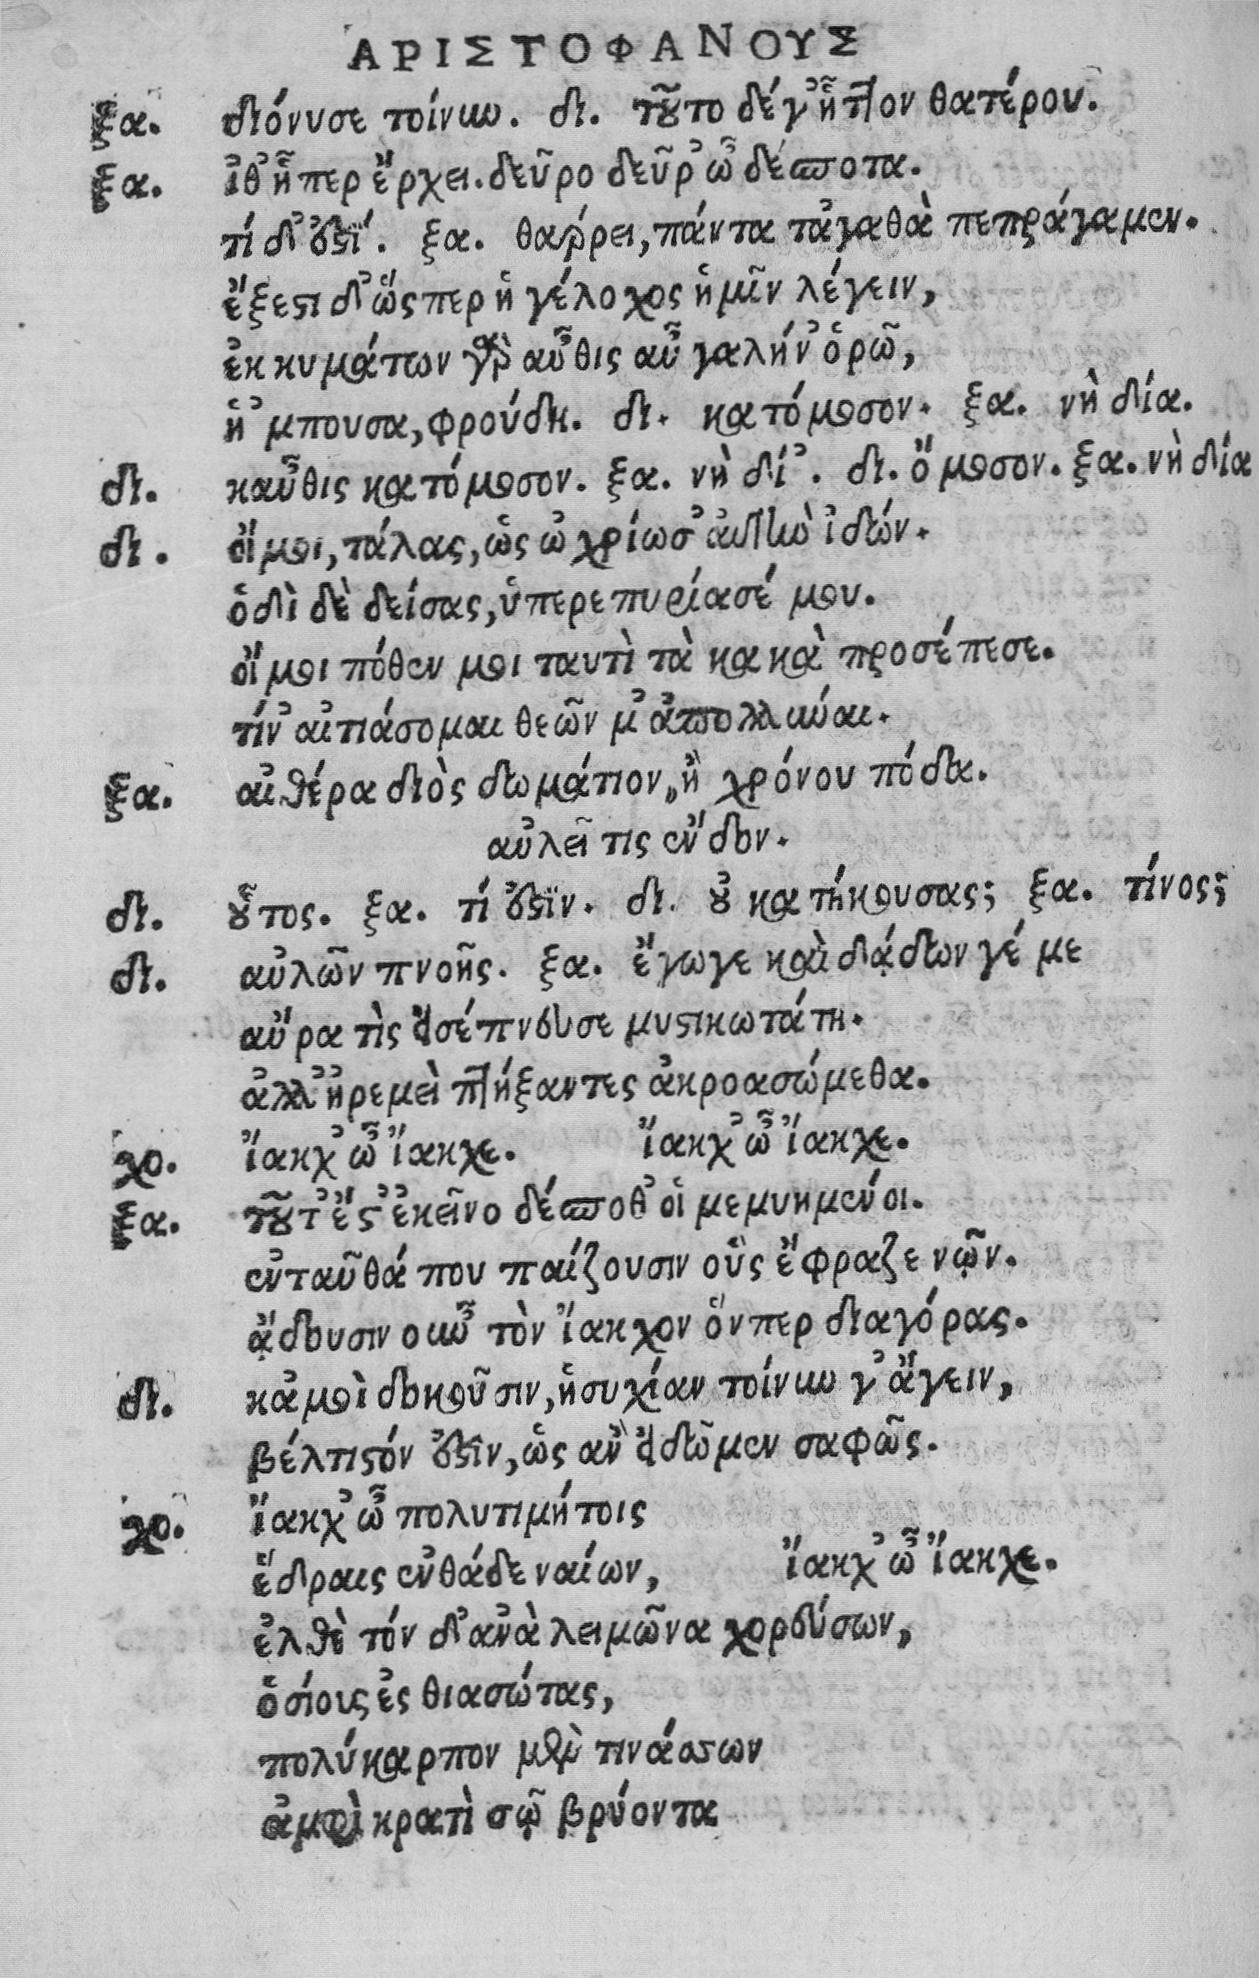 ΑΡΙΣΤΟΦΑΝΟΥΣ
ξα. διόνυσε τοίνυν. δι. τοῦτο δέ γ' ἧττον θατέρου.
ξα. ἴθ' ᾗπερ ἔρχει. δεῦρο δεῦρ' ὦ δέσποτα.
τί δ' ἐστί. ξα. θαῤῥει, πάντα τἀγαθὰ πεπράγαμεν.
ἔξεστι δ' ὥςπερ ἡγέλοχος ἡμῖν λέγειν,
ἐκ κυμάτων γὰρ αὖθις αὖ γαλήν' ὁρῶ,
ἡ' μπουσα, φρούδη. δι. κατόμοσον. ξα. νὴ δία.
δι. καὖθις κατόμοσον. ξα. νὴ δί'. δι. ὄμοσον. ξα. νὴ δία
δι. οἴμοι, τάλας, ὡς ὠχρίωσ' αὐτὴν ἰδών.
ὁδὶ δὲ δείσας, ὑπερεπυρίασέ μου.
οἴμοι πόθεν μοι ταυτὶ τὰ κακὰ προσέπεσε.
τίν' αἰτιάσομαι θεῶν μ' ἀπολλύναι.
ξα. αἰθέρα διὸς δωμάτιον, ἢ χρόνου πόδα.
αὐλεῖ τις ἔνδον.
δι. οὗτος. ξα. τί ἐστιν. δι. οὐ κατήκουσας; ξα. τίνος;
δι. αὐλῶν πνοῆς. ξα. ἔγωγε καὶ δᾴδων γέ με
αὔρα τὶς εἰσέπνευσε μυστικωτάτη.
ἀλλ' ἠρεμεὶ πτήξαντες ἀκροασώμεθα.
χο. ἴακχ' ὦ ἴακχε. ἴακχ' ὦ ἴακχε.
ξα. τοῦτ' ἔστ' ἐκεῖνο δέσποθ' οἱ μεμυημένοι.
ἐνταῦθά που παίζουσιν οὓς ἔφραζε νῷν.
ᾄδουσιν οὖν τὸν ἴακχον ὅνπερ διαγόρας.
δι. κἀμοὶ δοκοῦσιν, ἡσυχίαν τοίνυν γ' ἄγειν,
βέλτιστόν ἐστιν, ὡς ἂν εἰδῶμεν σαφῶς.
χο. ἴακχ' ὦ πολυτιμήτοις
ἕδραις ἐνθάδε ναίων, ἴακχ' ὦ ἴακχε.
ἐλθὲ τόν δ' ἀνὰ λειμῶνα χορεύσων,
ὁσίους ἐς θιασώτας,
πολύκαρπον μὲν τινάσσων
ἀμφὶ κρατὶ σῷ βρύοντα